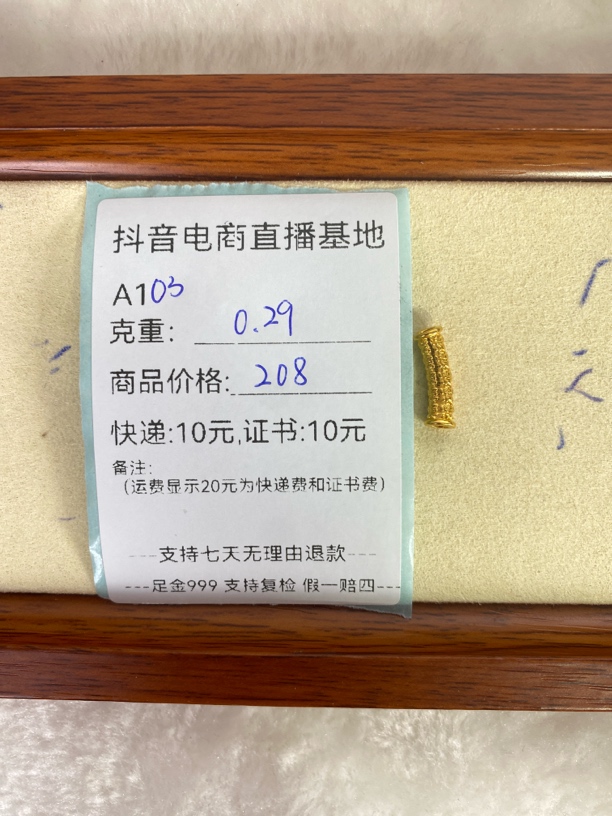 抖音电商直播基地
A103
克重： 0.29
商品价格: 208
快递:10元,证书:10元
备注:
（运费显示20元为快递费和证书费）
---支持七天无理由退款---
---足金999 支持复检 假一赔四---